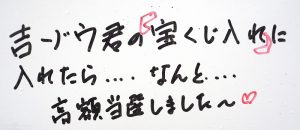 吉ードウ君の『宝くじ入れ』に
入れたら....なんと....
高額当選しました〜♡